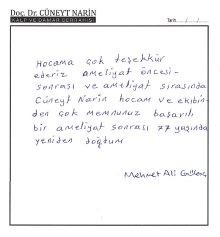 Doç. Dr. CÜNEYT NARİN
KALP VE DAMAR CERRAHİSİ
Tarih ..../..../....
Hocama çok teşekkür
ederiz Ameliyat öncesi-
sonrası ve ameliyat sırasında
Cüneyt Narin hocam ve ekibin-
den çok memnunuz başarılı
bir ameliyat sonrası 77 yaşında
yeniden doğdum
Mehmet Ali